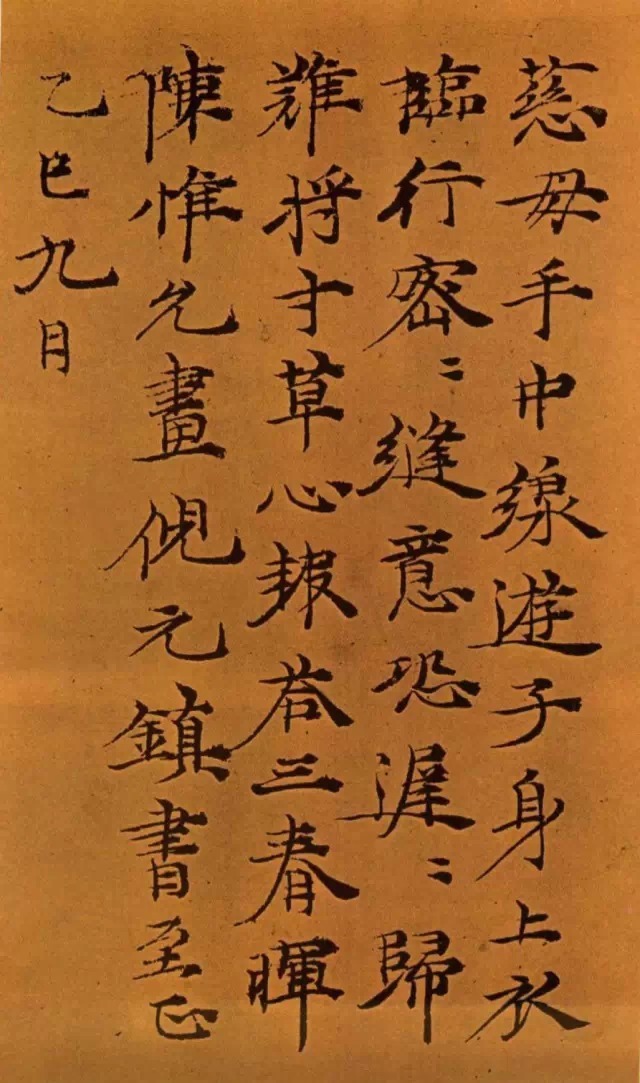 慈母手中線遊子身上衣
臨行密〻縫意恐遲〻歸
難将寸草心報荅三春暉
陳惟允畫倪元鎮書至正
乙巳九日